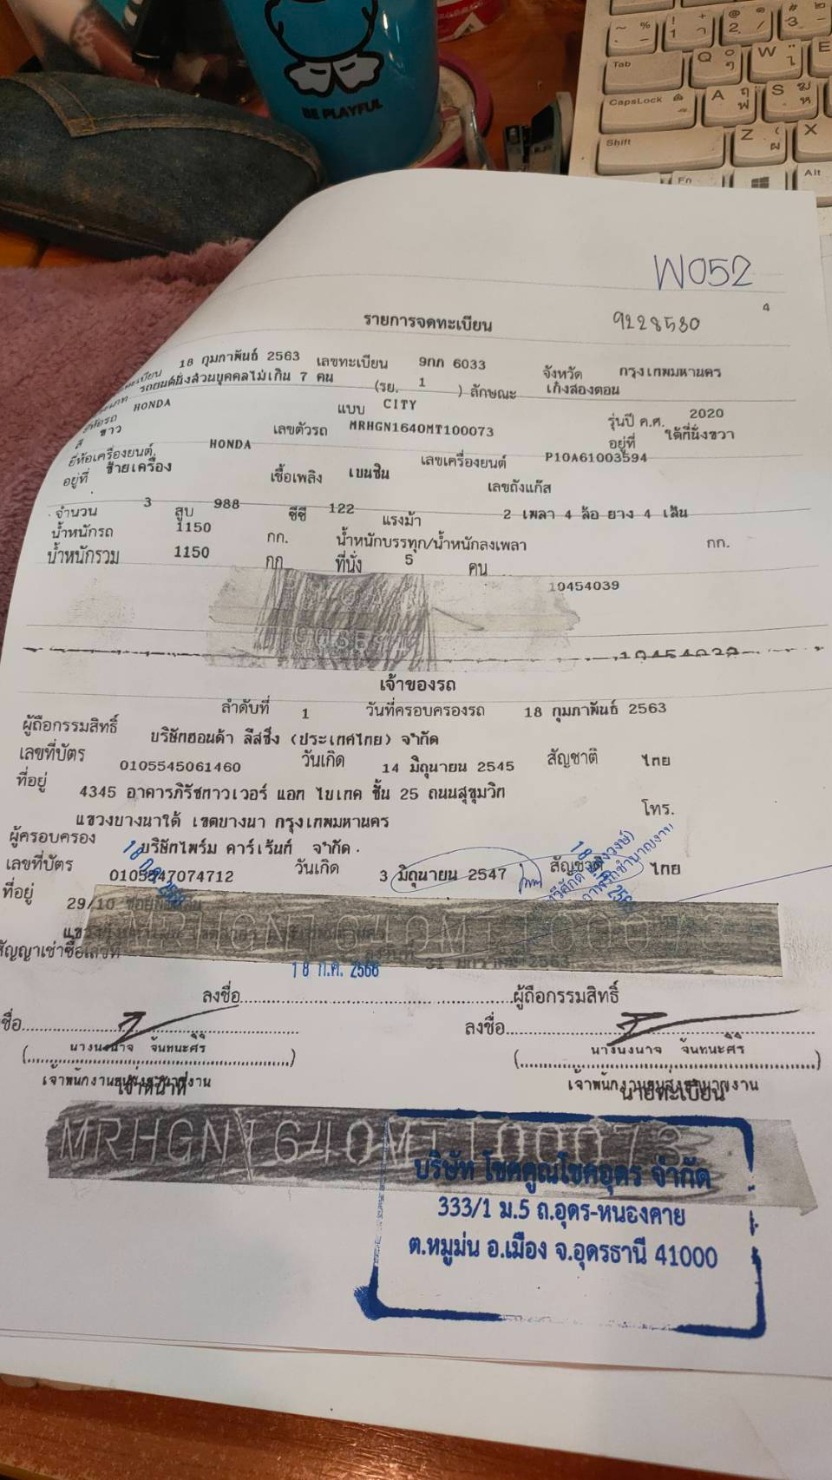 BE PLAYFUL
Tab Q W E
CapsLock A S
Shift Z X
Fn Alt
W052
4
รายการจดทะเบียน 9228530
18 กุมภาพันธ์ 2563 เลขทะเบียน 9กก 6033 จังหวัด กรุงเทพมหานคร
รถยนต์นั่งส่วนบุคคลไม่เกิน 7 คน (รย. 1 ) ลักษณะ เก๋งสองตอน
HONDA แบบ CITY รุ่นปี ค.ศ. 2020
สี ขาว เลขตัวรถ MRHGN1640MT100073 อยู่ที่ ใต้ที่นั่งขวา
ยี่ห้อเครื่องยนต์ HONDA เลขเครื่องยนต์ P10A61003594
อยู่ที่ ซ้ายเครื่อง เชื้อเพลิง เบนซิน เลขถังแก๊ส
จำนวน 3 สูบ 988 ซีซี 122 แรงม้า 2 เพลา 4 ล้อ ยาง 4 เส้น
น้ำหนักรถ 1150 กก. น้ำหนักบรรทุก/น้ำหนักลงเพลา กก.
น้ำหนักรวม 1150 กก ที่นั่ง 5 คน
10454039
10454039
เจ้าของรถ
ลำดับที่ 1 วันที่ครอบครองรถ 18 กุมภาพันธ์ 2563
ผู้ถือกรรมสิทธิ์ บริษัทฮอนด้า ลีสซิ่ง (ประเทศไทย) จำกัด
เลขที่บัตร 0105545061460 วันเกิด 14 มิถุนายน 2545 สัญชาติ ไทย
ที่อยู่ 4345 อาคารภิรัชทาวเวอร์ แอท ไบเทค ชั้น 25 ถนนสุขุมวิท
แขวงบางนาใต้ เขตบางนา กรุงเทพมหานคร โทร.
ผู้ครอบครอง บริษัทไพร์ม คาร์เร้นท์ จำกัด
เลขที่บัตร 0105547074712 วันเกิด 3 มิถุนายน 2547 สัญชาติ ไทย
ที่อยู่ 29/10
MRHGN1640MT100073
18 ก.ค. 2566
ลงชื่อ ผู้ถือกรรมสิทธิ์
ลงชื่อ
นางนงนาจ จันทนะศิริ นางนงนาจ จันทนะศิริ
เจ้าหน้าที่ นายทะเบียน
MRHGN1640MT100073
บริษัท โชคคูณโชคอุดร จำกัด
333/1 ม.5 ถ.อุดร-หนองคาย
ต.หมูม่น อ.เมือง จ.อุดรธานี 41000